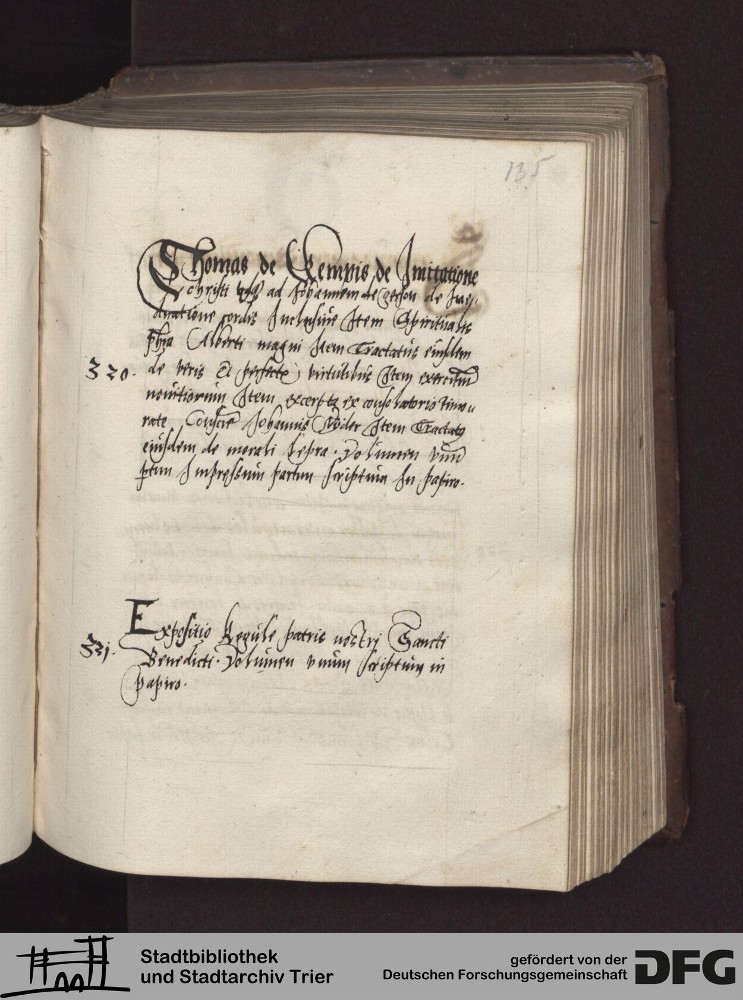 135
Thomas de Kempis de Imitatione
Christi ad Johannem de Gerson de
cordis Inclusive Item Spiritualis
phia Alberti magni Item Tractatus eiusdem
320. de veris et perfectis virtutibus Item exercitium
novitiorum Item excerpta ex consolatorio timo
rate Johannis Nider Item Tractatus
eiusdem de morali lepra. Volumen vnum
ptim Impressum partim scriptum In papiro.
Expositio Regule patris nostri Sancti
321. Benedicti. Volumen vnum scriptum in
papiro.
Stadtbibliothek
und Stadtarchiv Trier
gefördert von der
Deutschen Forschungsgemeinschaft
DFG